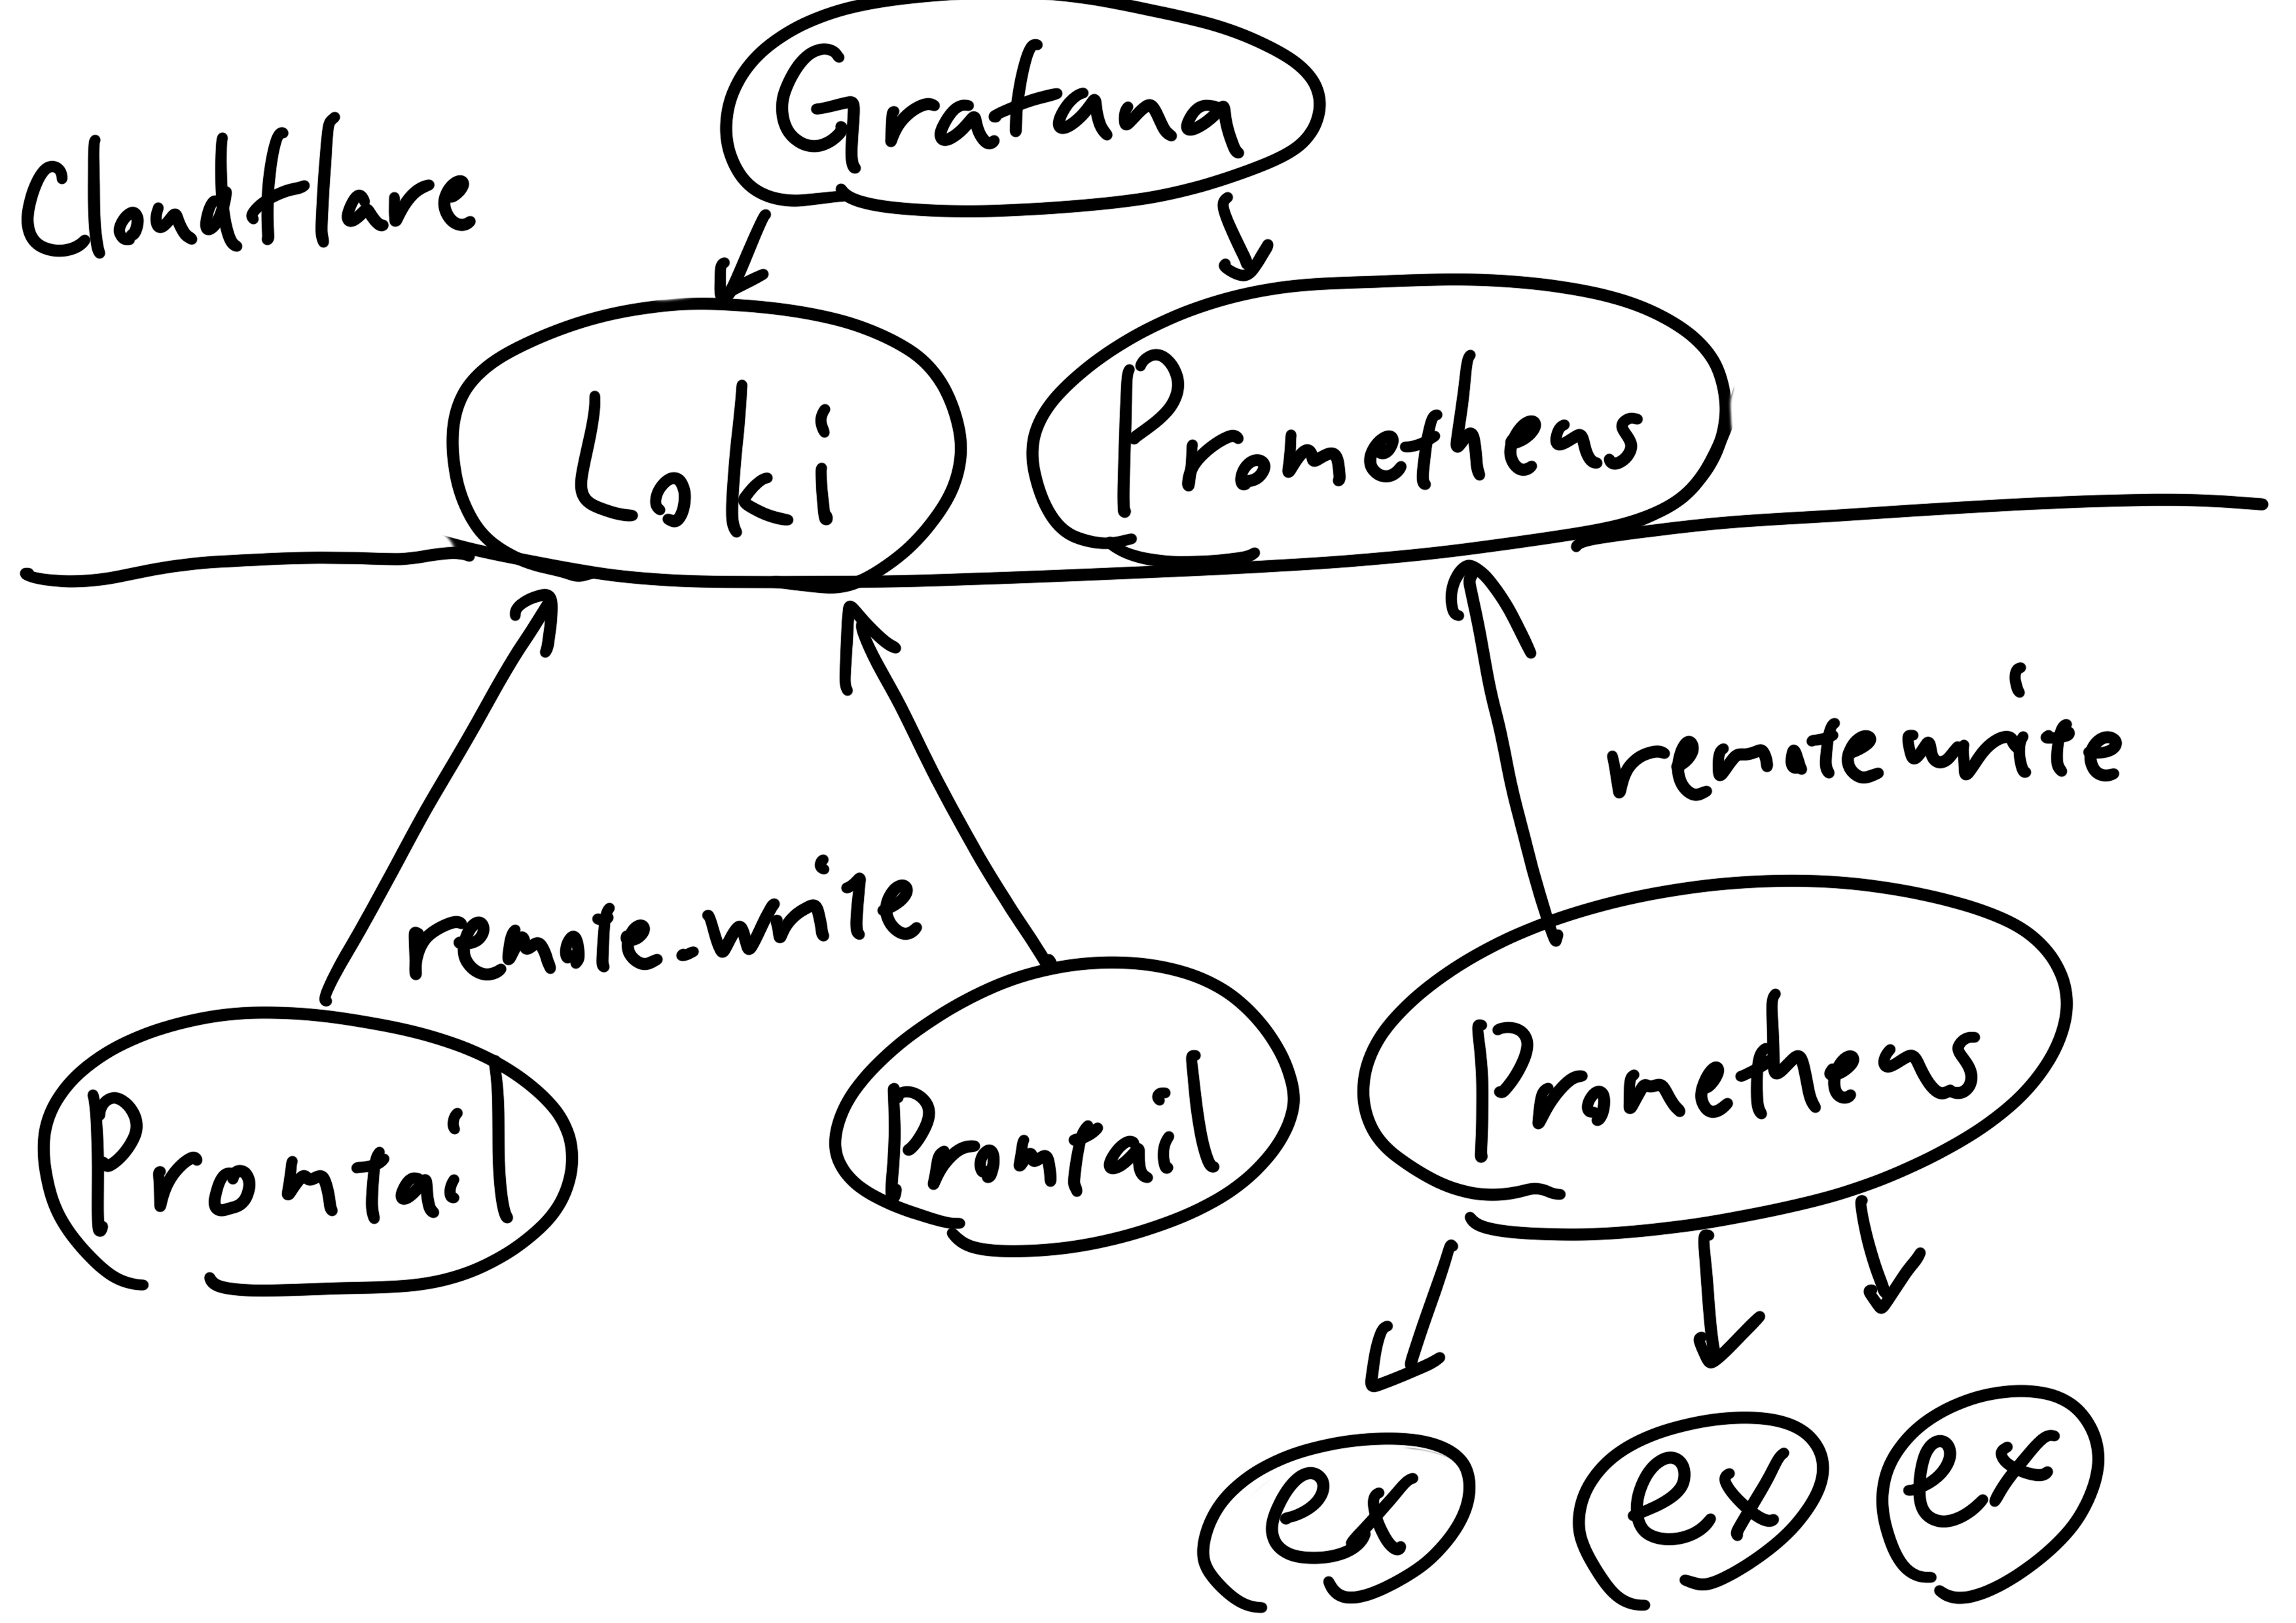 Grafana
Cloudflare
Loki
Prometheus
remote write
remote_write
Promtail
Promtail
Prometheus
ex
ex
ex